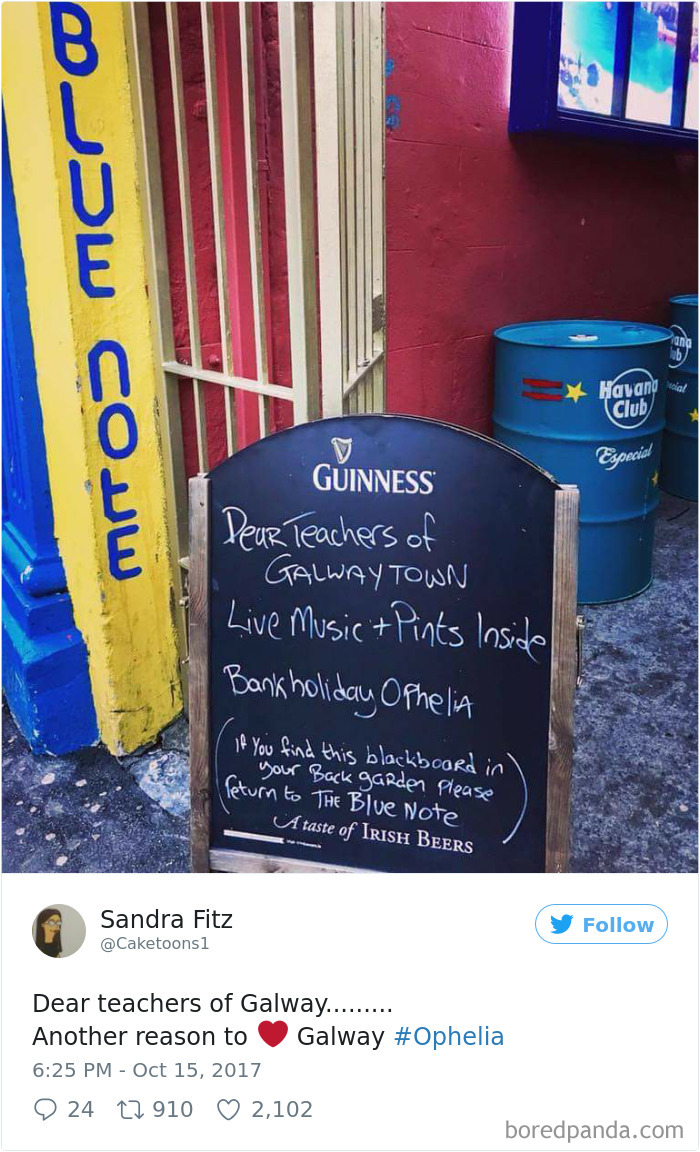 BLUE NOTE
Havana
Club
Especial
GUINNESS
Dear Teachers of
GALWAY TOWN
Live Music + Pints Inside
Bank holiday OPheliA
(If You find this blackboard in
your Back garden Please
return to THE BLUE NOTE)
A taste of IRISH BEERS
Sandra Fitz
@Caketoons1
Follow
Dear teachers of Galway.........
Another reason to ❤ Galway #Ophelia
6:25 PM - Oct 15, 2017
24 910 2,102
boredpanda.com